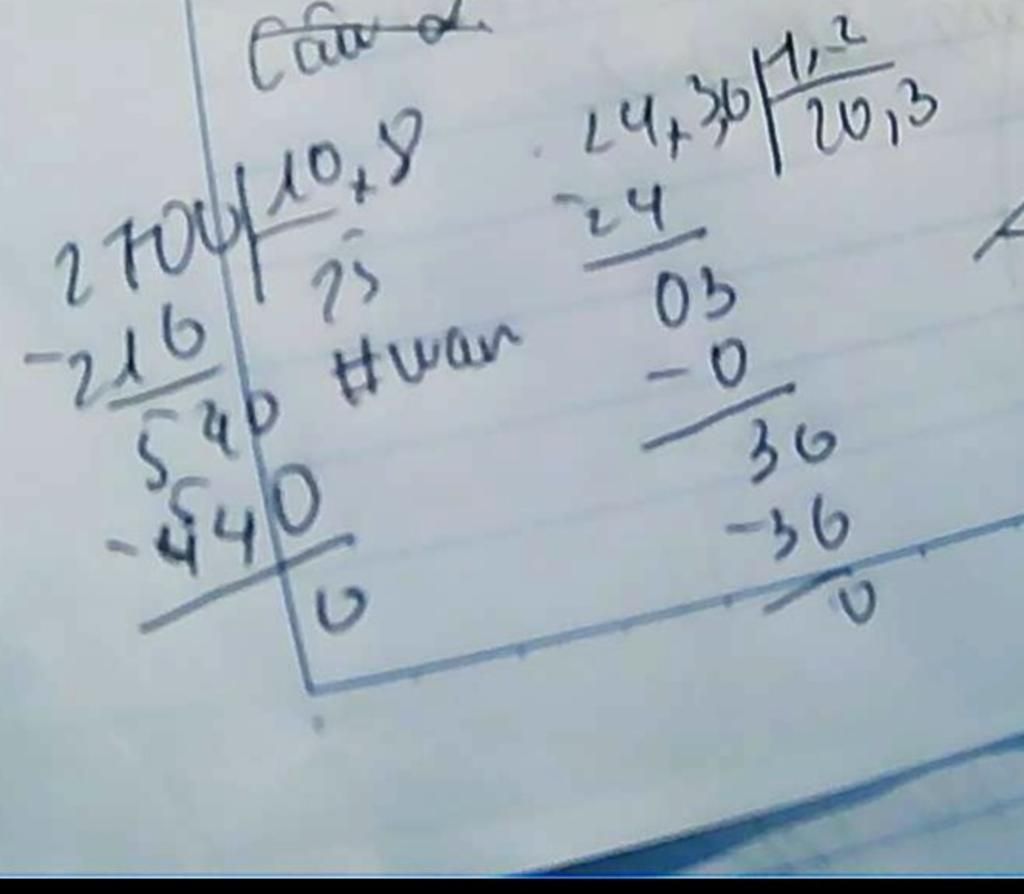 Câu 2.
2700 10,8
-216 25
540
-540
0
24,36 1,2
-24 20,3
03
-0
36
-36
0